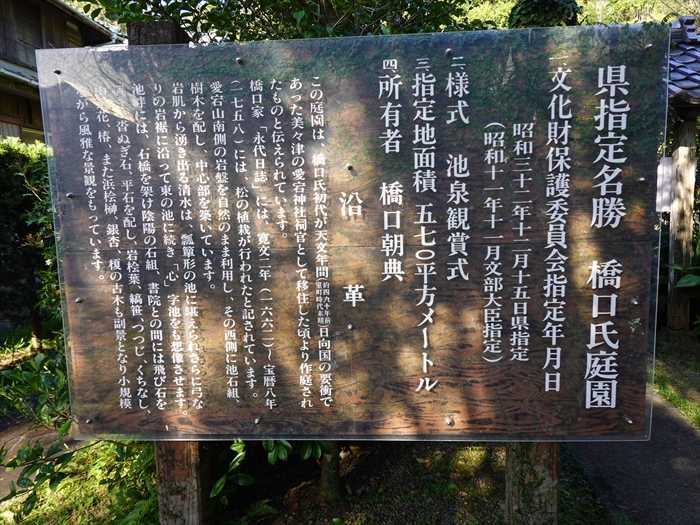 県指定名勝 橋口氏庭園
一 文化財保護委員会指定年月日
昭和三十二年十二月十五日県指定
(昭和十一年十一月文部大臣指定)
二 様式 池泉観賞式
三 指定地面積 五七〇平方メートル
四 所有者 橋口朝典
沿革
この庭園は、橋口氏初代が天文年間(約四六十年前室町時代末期)日向国の要衝で
あった美々津の愛宕神社祠官として移住した頃より作庭され
たものと伝えられています。
橋口家「永代日誌」には、寛文二年(一六六二)~宝暦八年
(一七五八)には、松の植栽が行われたと記されています。
愛宕山南側の岩盤を自然のまま利用し、その西側に池石組、
樹木を配し、中心部を築いています。
岩肌から湧き出る清水は、瓢簞形の池に堪えられさらに弓な
りの岩裾に沿って東の池に続き「心」字池をも想像させます。
池畔には、石橋を架け陰陽の石組、書院との間には飛び石を
沓ぬぎ石、平石を配し、岩桧葉、縞笹、つつじ、くちなし、
花、椿、また浜桧榊、銀杏、榎の古木も副景となり小規模
がら風雅な景観をもっています。